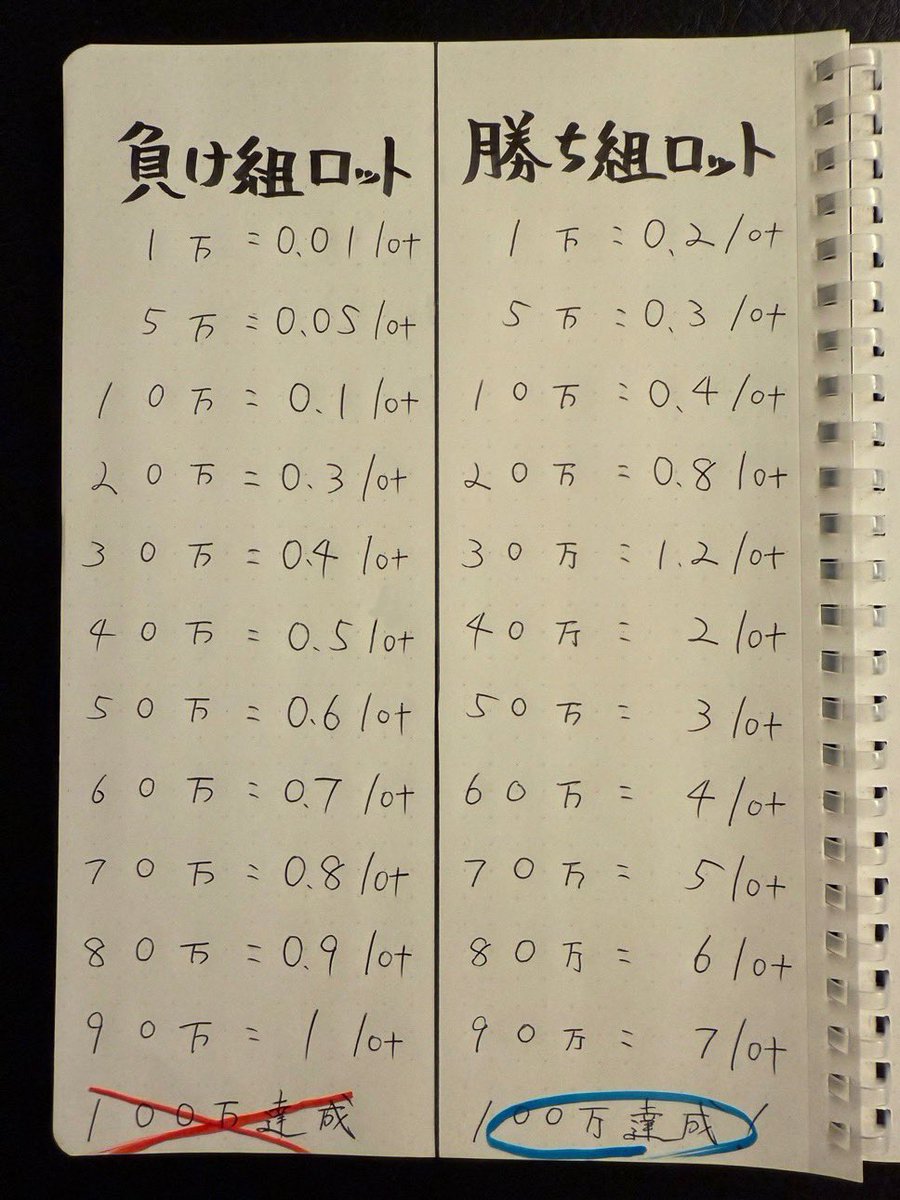 負け組ロット
1万=0.01lot
5万=0.05lot
10万=0.1lot
20万=0.3lot
30万=0.4lot
40万=0.5lot
50万=0.6lot
60万=0.7lot
70万=0.8lot
80万=0.9lot
90万=1lot
100万達成
勝ち組ロット
1万=0.2lot
5万=0.3lot
10万=0.4lot
20万=0.8lot
30万=1.2lot
40万=2lot
50万=3lot
60万=4lot
70万=5lot
80万=6lot
90万=7lot
100万達成